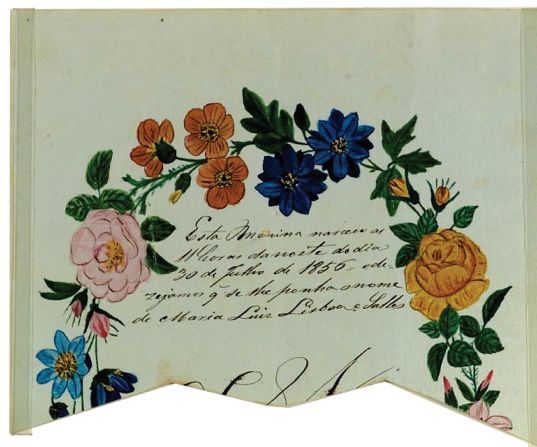 Esta Menina nasceu as
11 horas da noite do dia
30 de Julho de 1856, e de-
zejamos q' se lhe ponha o nome
de Maria Luiz Lisboa e Salles